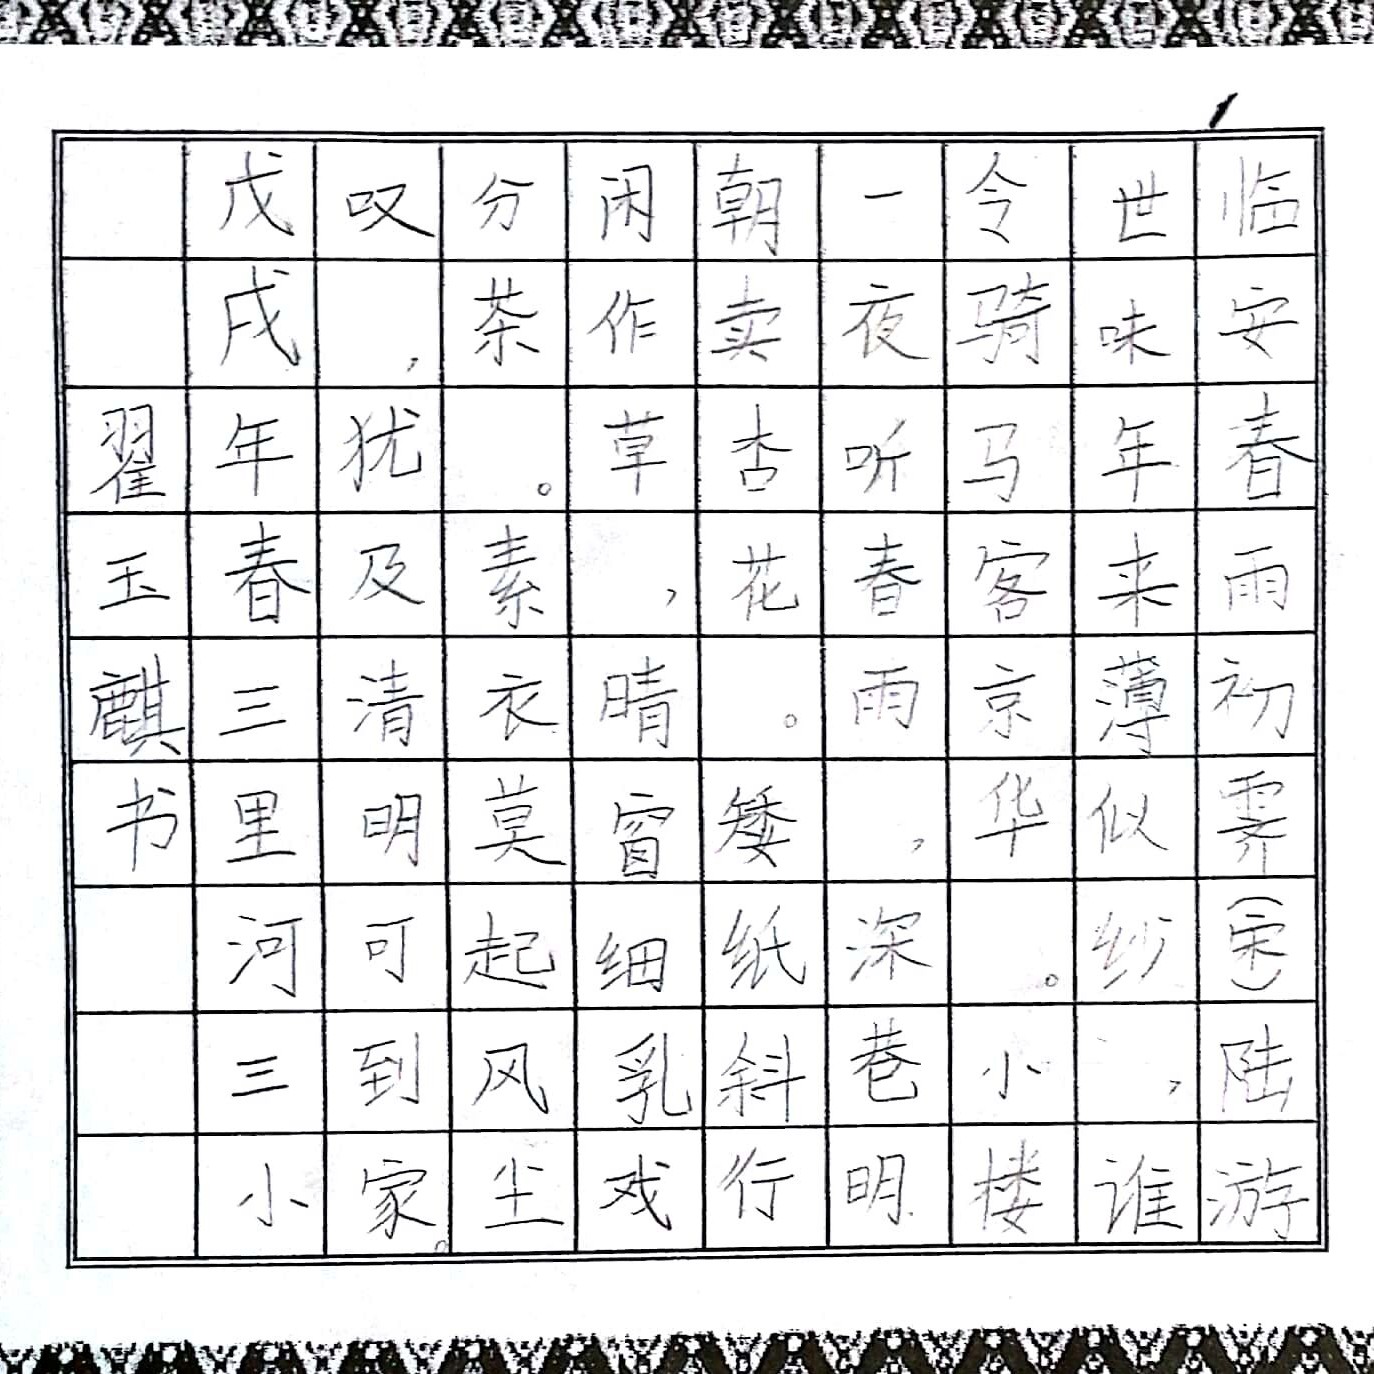 临安春雨初霁(宋)陆游
世味年来薄似纱,谁
令骑马客京华。小楼
一夜听春雨,深巷明
朝卖杏花。矮纸斜行
闲作草,晴窗细乳戏
分茶。素衣莫起风尘
叹,犹及清明可到家。
戊戌年春三里河三小
翟玉麒书